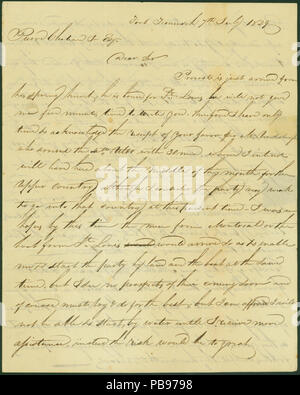 7th July 1829
Pierre Chouteau Jr. Esqr.
Dear Sir
Provost is just arrived from
his Spring hunt, he is bound for St. Louis, he will not give
me five minutes time to write you. Therefore I have only
time to acknowledge the receipt of your favor
who arrived the with I intend
will have here about the middle of this month for the
Upper Country with a small party
to go into that country at this present time. I was in
hopes by this time the men from Montreal or the
boat from St. Louis would arrive so as to enable
me to start the party by land and the boat at the same
time, but I see no prospects of their coming soon and
of course must do for the best, but I am afraid I will
not be able to start by water until I receive more
assistance, instead the risk would be to great.
alamy
PB9798